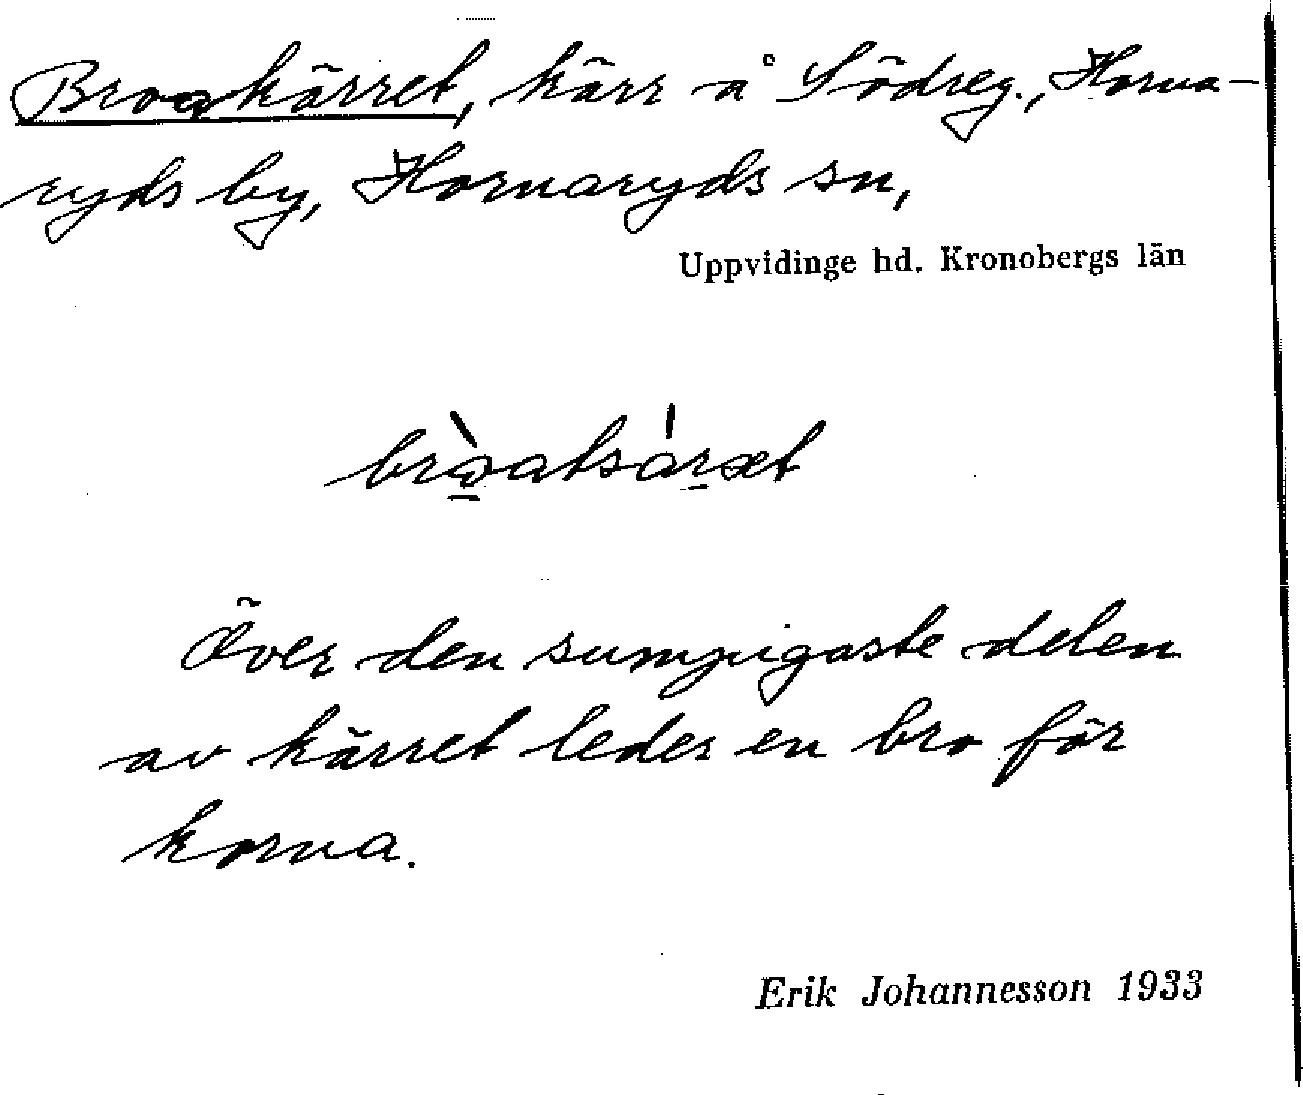 Broakärret, kärr å Södreg., Horna-
ryds by, Hornaryds sn,
Uppvidinge hd. Kronobergs län
Över den sumpigaste delen
av kärret leder en bro för
korna.
Erik Johannesson 1933